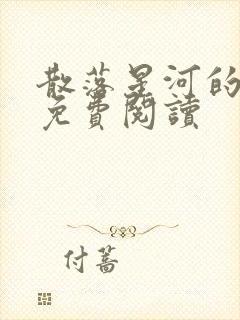 散落星河的
免費閱讀
付蔷